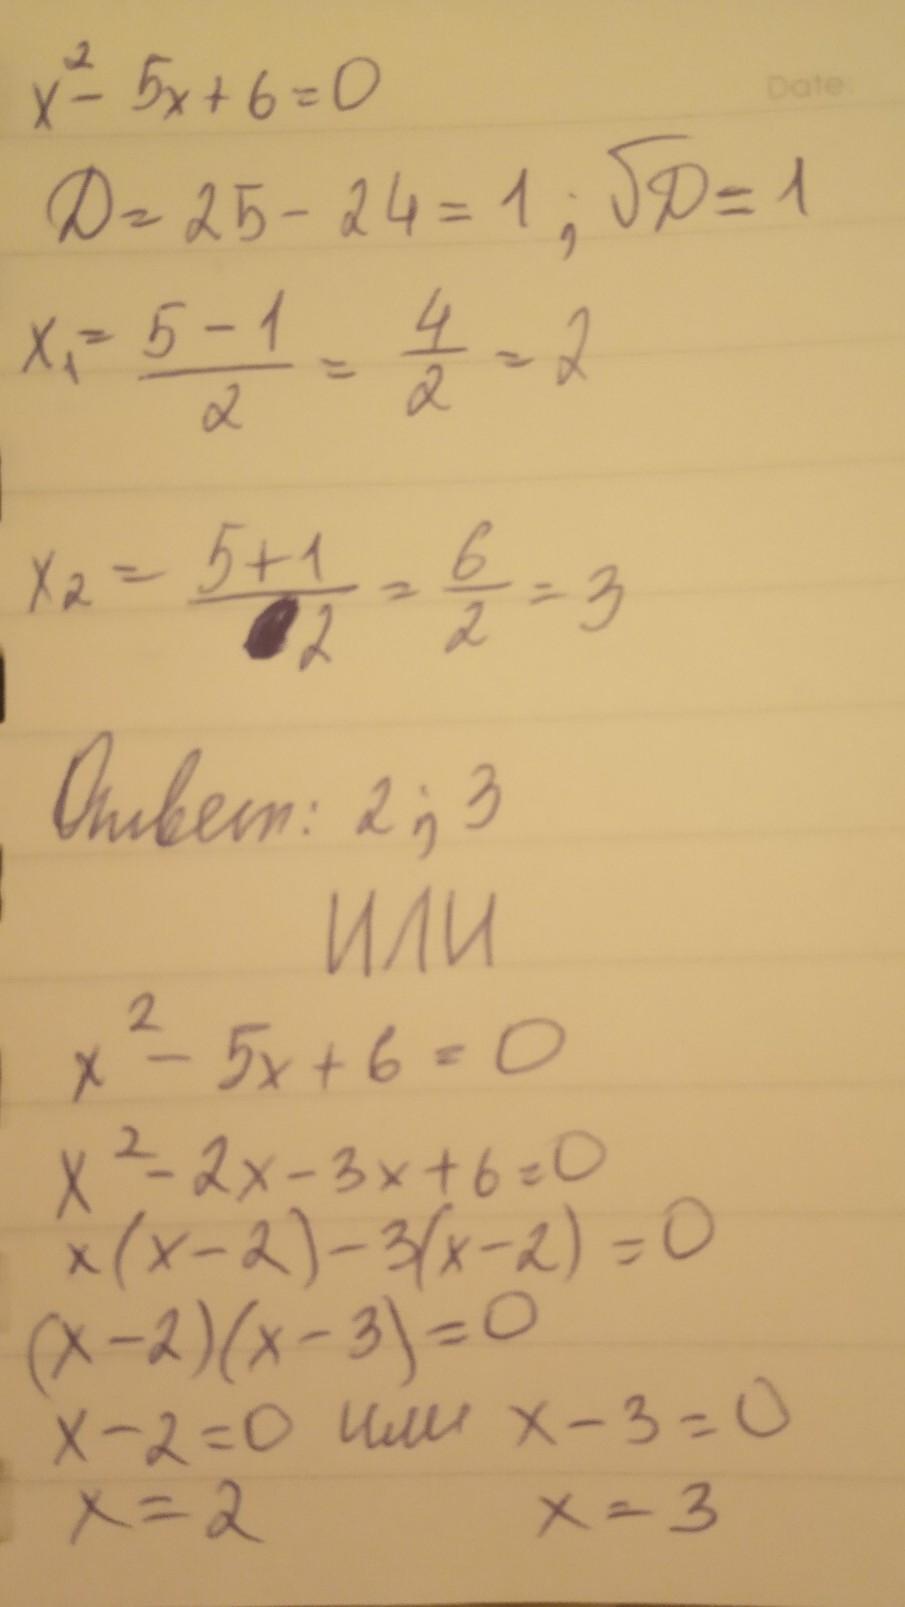 Date:
x² - 5x + 6 = 0
D = 25 - 24 = 1 ; √D = 1
x₁ = (5 - 1)/2 = 4/2 = 2
x₂ = (5 + 1)/2 = 6/2 = 3
Ответ: 2 ; 3
ИЛИ
x² - 5x + 6 = 0
x² - 2x - 3x + 6 = 0
x(x - 2) - 3(x - 2) = 0
(x - 2)(x - 3) = 0
x - 2 = 0 или x - 3 = 0
x = 2 x = 3